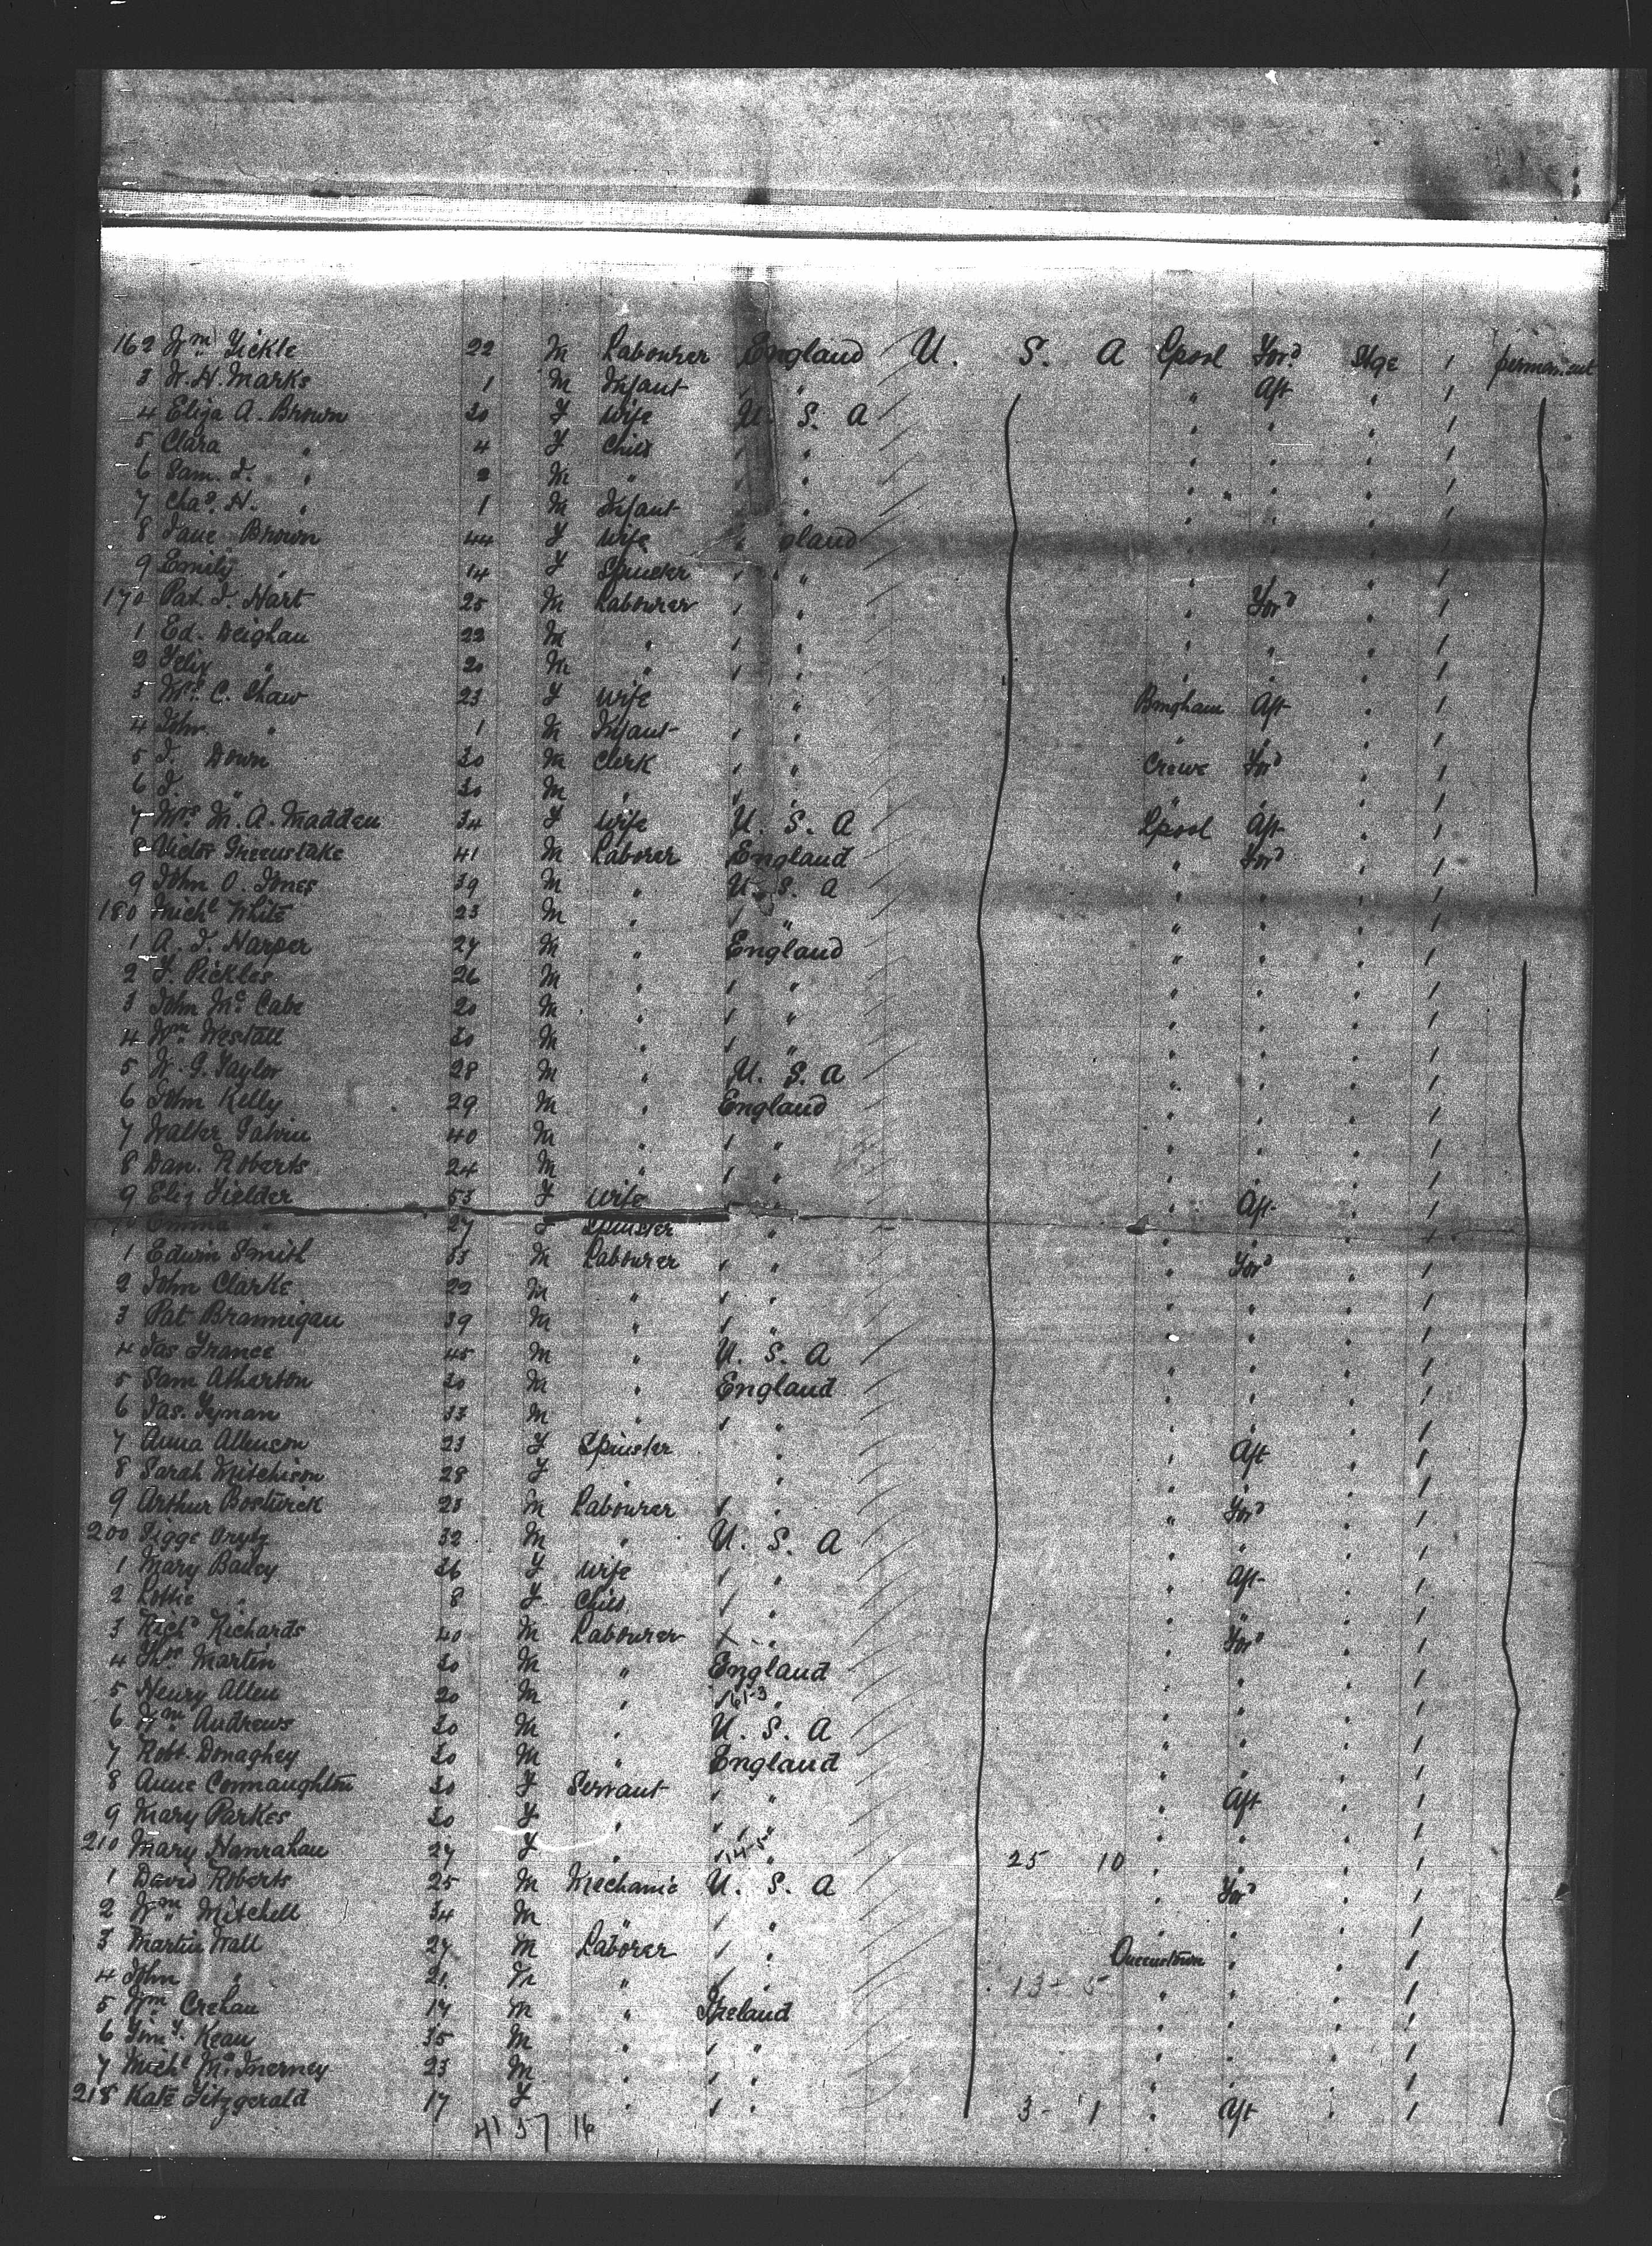 162 Wm Tickle 22 M Labourer England U. S. A Lpool For'd Stge 1 permanent
3 W. H. Marks 1 M Infant " " " Aft " 1
4 Eliza A. Brown 30 F Wife U. S. A " " " 1
5 Clara " 4 F Child " " " " " 1
6 Sam. J. " 2 M " " " " " " 1
7 Chas. H. " 1 M Infant " " " " " 1
8 Jane Brown 44 F Wife England " " " 1
9 Emily " 14 F Spinster " " " " " 1
170 Pat. J. Hart 25 M Labourer " " " For'd " 1
1 Ed. Deighan 22 M " " " " " " 1
2 Felix " 20 M " " " " " " 1
3 Mrs C. Shaw 23 F Wife " Bmgham Aft " 1
4 John " 1 M Infant " " " " " 1
5 J. Down 30 M Clerk " " Crewe For'd " 1
6 J. " 30 M " " " " " " 1
7 Mrs M. A. Madden 34 F Wife U. S. A Lpool Aft " 1
8 Victor Greenslake 41 M Laborer England " For'd " 1
9 John O. Jones 39 M " U. S. A " " " 1
180 Michl White 23 M " " " " " " 1
1 A. J. Harper 27 M " England " " " 1
2 F. Pickles 26 M " " " " " " 1
3 John McCabe 20 M " " " " " " 1
4 Wm Westall 30 M " " " " " " 1
5 W. G. Taylor 28 M " U. S. A " " " 1
6 John Kelly 29 M " England " " " 1
7 Walter Galvin 40 M " " " " " " 1
8 Dan. Roberts 24 M " " " " " " 1
9 Eliz Fielder 53 F Wife " " Aft " 1
Emma " 27 F Spinster " " " " 1
1 Edwin Smith 33 M Labourer " " " For'd " 1
2 John Clarke 22 M " " " " " " 1
3 Pat Brannigan 39 M " " " " " " 1
4 Jas France 45 M " U. S. A " " " 1
5 Sam Atharton 30 M " England " " " 1
6 Jas. Tynan 33 M " " " " " " 1
7 Anna Allenson 23 F Spinster " " Aft " 1
8 Sarah Mitchison 28 F " " " " " 1
9 Arthur Bostwick 23 M Labourer " " " For'd " 1
200 32 M " U. S. A " " " 1
1 Mary Bailey 36 F Wife " " " Aft " 1
2 Lottie " 8 F Child " " " " " 1
3 Richd Richards 40 M Labourer " " " For'd " 1
4 Thos Martin 30 M " England " " " 1
5 Henry Allen 20 M " " 61-3 " " " " 1
6 Wm Andrews 30 M " U. S. A " " " 1
7 Robt. Donaghey 30 M " England " " " 1
8 Anne Connaughton 30 F Servant " " " Aft " 1
9 Mary Parkes 30 F " " " " " " 1
210 Mary Hanrahan 27 F " " 14-5 " 25 10 " " " 1
1 David Roberts 25 M Mechanic U. S. A " For'd " 1
2 Wm Mitchell 34 M " " " " " " 1
3 Martin Wall 27 M Laborer " " Queenstown " " 1
4 John " 21 M " " " 13-5 " " " 1
5 Wm Crehan 17 M " Ireland " " " 1
6 Timy. Kean 35 M " " " " " " 1
7 Michl McInerney 23 M " " " " " " 1
218 Kate Fitzgerald 17 F " " " 3-1 " Aft " 1
41 57 16